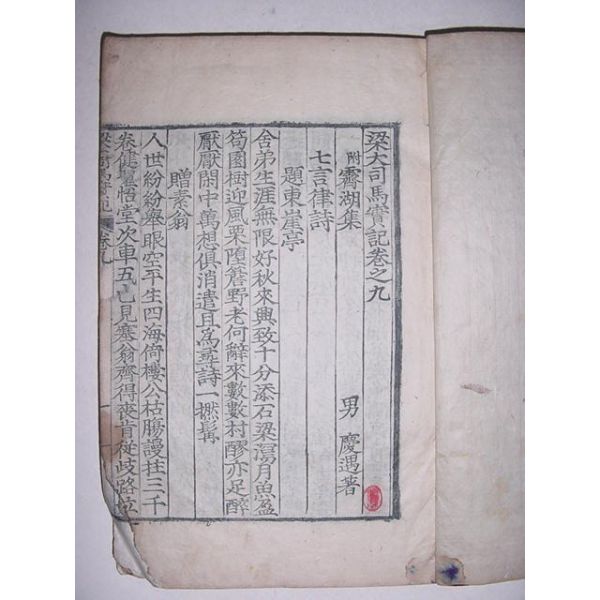 梁大司馬實記卷之九
附霽湖集 男 慶遇著
七言律詩
題東崖亭
舍弟生涯無限好秋來興致十分添石梁濕月魚盈
筍園樹迎風栗墮簷野老何辭來數數村醪亦足醉
厭厭閑中萬想俱消遣且爲尋詩一撚髯
贈素翁
人世紛紛舉眼空平生四海倚樓公枯腸謾拄三千
卷健悟堂次車五已見塞翁齊得喪肯從歧路
卷九